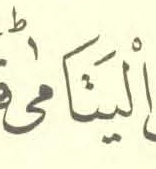 الْيَتَامٰىؕ